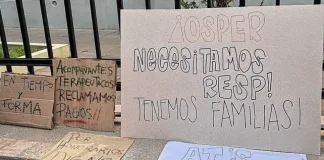 EN TIEMPO
Y
FORMA
ACOMPAÑANTES
TERAPEUTICOS
RECLAMAMOS
PAGOS!!
¡OSPER
NECESITAMOS
RESP!
TENEMOS FAMILIAS!
HONORARIOS